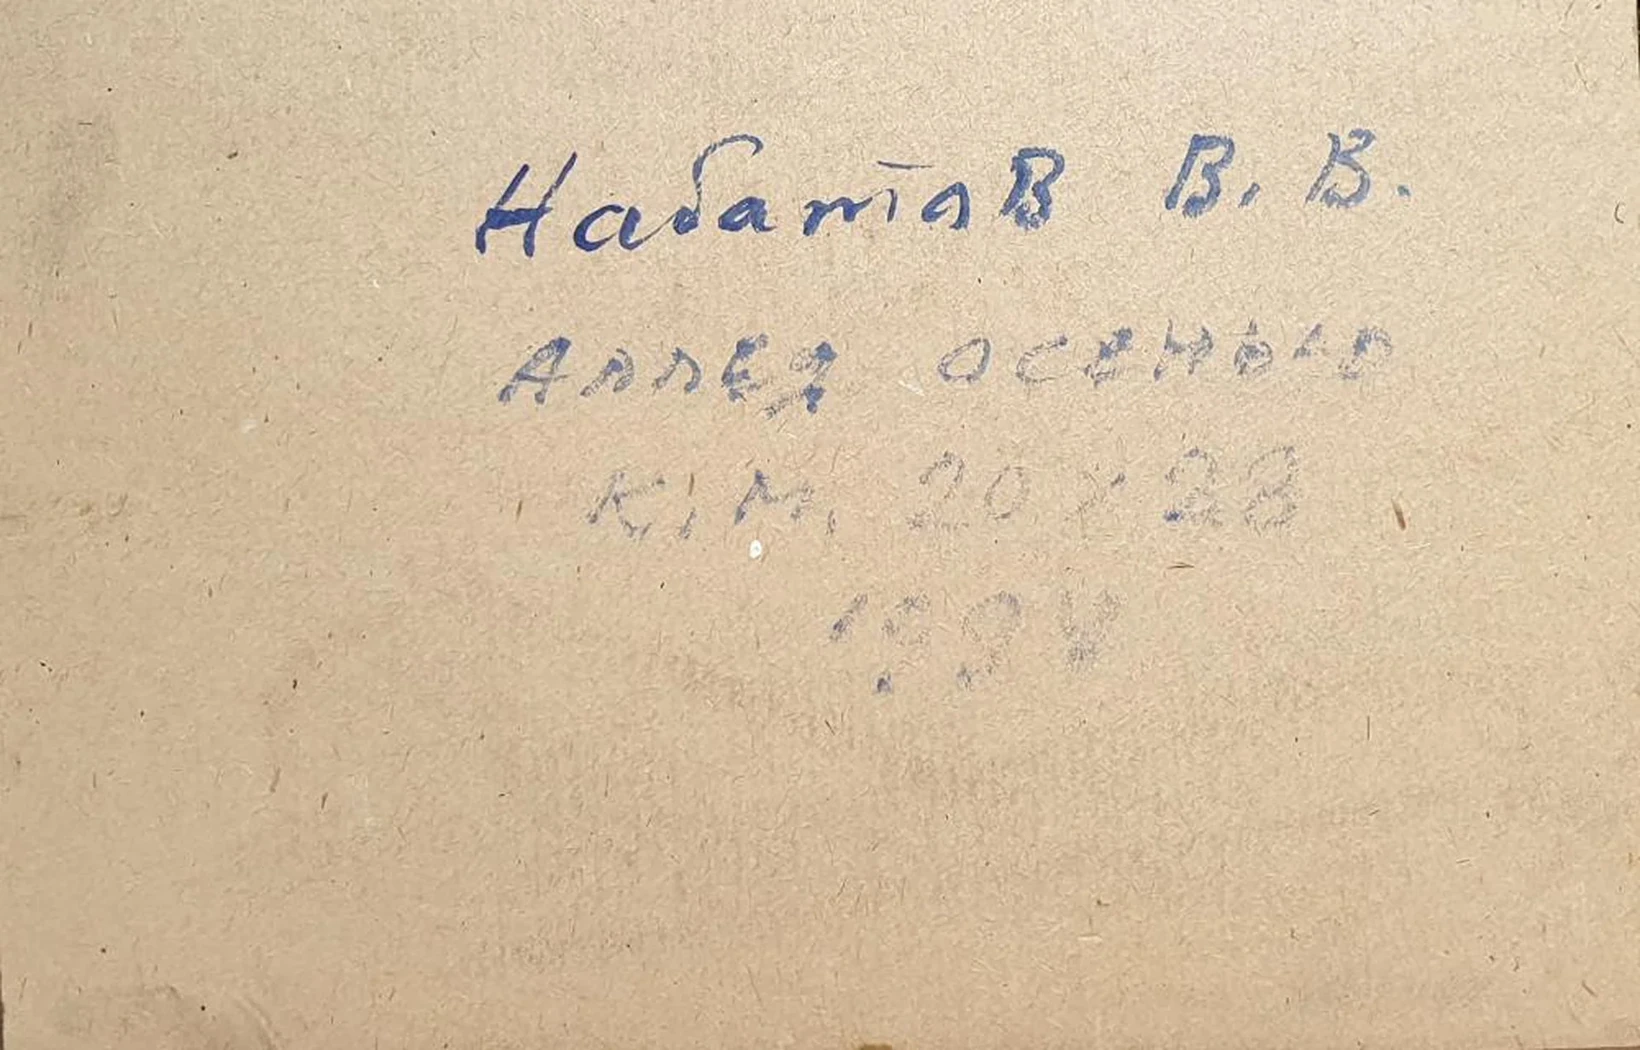 Набатов В. В.
Аллея осенью
К, м, 20 х 28
1994